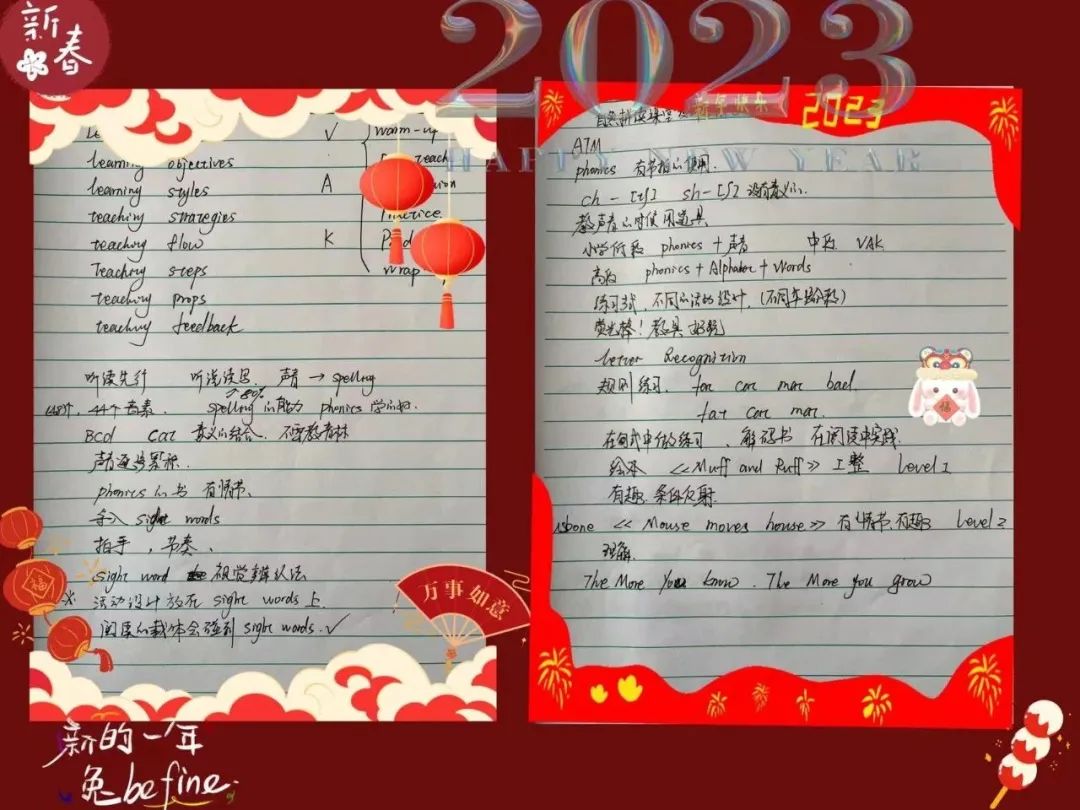 新春
2023
HAPPY NEW YEAR
learning objectives
learning styles
teaching strategies
teaching flow
Teaching steps
teaching props
teaching feedback
V
A
K
warm-up
teach
Practice
Prod
wrap
听读先行 听说读写. 声音 → spelling
>80%
44个音素. spelling 的能力 phonics 学的好.
Bcd car 意义的结合. 不要教音标
声音逐步累积.
phonics 的书 有情节、
导入 sight words
拍手, 节奏、
sight word 视觉辨认法
※ 活动设计放在 sight words 上.
阅读的载体会碰到 sight words. ✓
万事如意
福
新的一年
兔 be fine.
自然拼读课堂
新年快乐
2023
ATM
phonics 有节拍的使用.
ch - [tʃ] sh - [ʃ] 没有意义的.
教声音的时候 用道具
小学低段 phonics + 声音 中段 VAK
高段 phonics + Alphabet + Words
练习载, 不同的活动设计. (不同年龄段)
荧光棒! 教具 好玩
letter Recognition
规则练习. far car mar bad.
far car mar.
在句式中做练习、解码书 在阅读中实践.
绘本 《Muff and Ruff》工整 Level 1
有趣. 条件反射.
usbone 《Mouse moves house》有情节. 有趣 Level 2
理解.
The More You know The More you grow
福